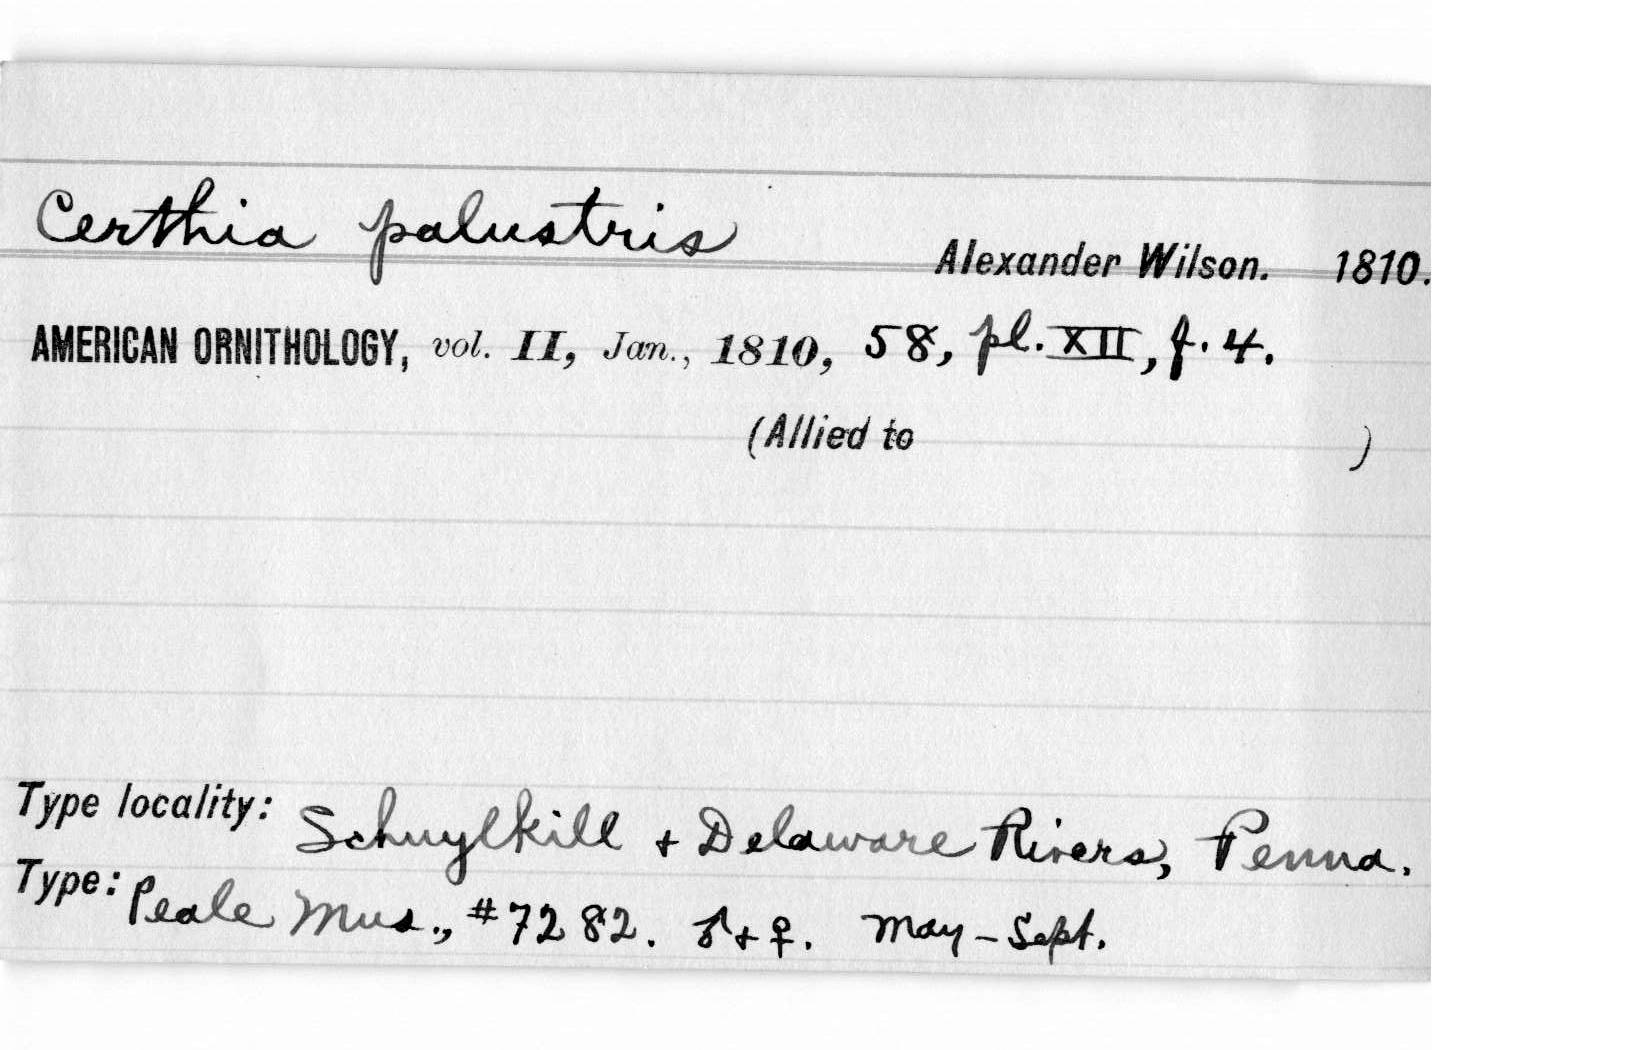 Certhia palustris Alexander Wilson. 1810.
AMERICAN ORNITHOLOGY, vol. II, Jan., 1810, 58, pl. XII, f. 4.
(Allied to )
Type locality: Schuylkill + Delaware Rivers, Penna.
Type: Peale Mus., #7282. ♂ + ♀. May – Sept.